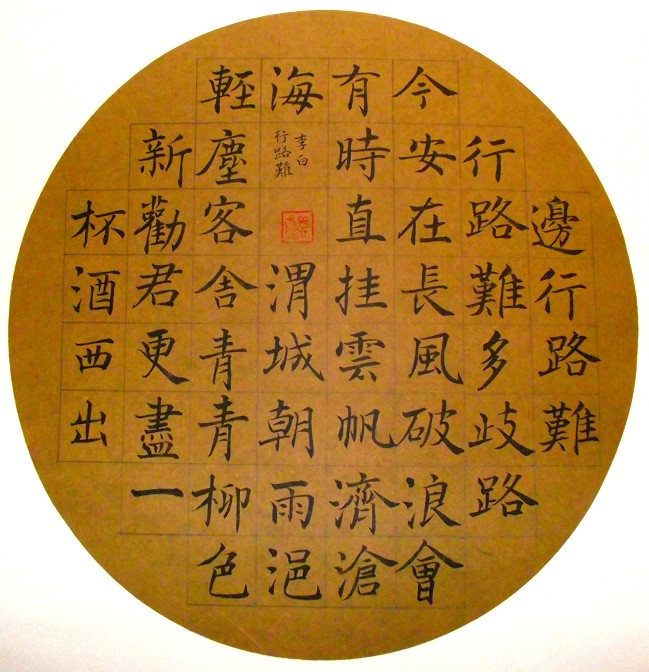 邊行路難
行路難多歧路
今安在長風破浪會
有時直挂雲帆濟滄
海
李白
行路難
渭城朝雨浥
輕塵客舍青青柳色
新勸君更盡一
杯酒西出